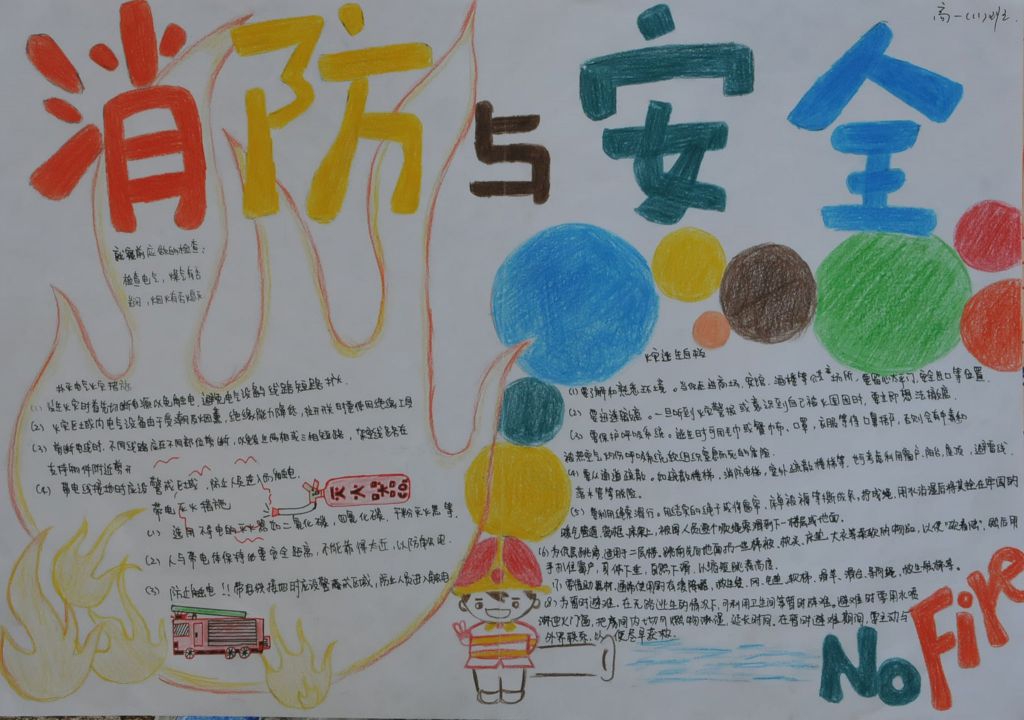 高一(1)班
消防与安全
就寝前应做的检查：
检查电气，煤气有否
关闭，烟火有否熄灭
扑灭电气火灾措施
(1) 发生火灾时首先切断电源以免触电，避免电气设备与线路短路扩大。
(2) 火灾区域内电气设备由于受潮及烟熏，绝缘能力降低，拉开关时要使用绝缘工具
(3) 剪断电线时，不同线路应在不同部位剪断，以免造成两相或三相短路，架空线路应在
支持物件附近剪断
(4) 带电线接地时应设警戒区域，防止人员进入而触电。
带电灭火措施
(1) 选用不导电的灭火器如二氧化碳，四氯化碳、干粉灭火器等。
(2) 人与带电体保持必要安全距离，不能靠得太近，以防触电。
(3) 防止触电！！带电线接地时应设警戒区域，防止人员进入触电
灭火器
CO2
火灾逃生自救
(1) 要了解和熟悉环境。当你走进商场、宾馆、酒楼等公共场所，要留心太平门、安全出口等位置.
(2) 要迅速撤离。一旦听到火灾警报或意识到自己被火围困时，要立即想法撤离.
(3) 要保护呼吸系统。逃生时可用毛巾或餐巾布、口罩、衣服等将口鼻捂护，否则会有中毒和
被热空气灼伤呼吸系统软组织窒息致死的危险。
(4) 要从通道疏散。如疏散楼梯、消防电梯、室外疏散楼梯等。也可考虑利用窗户、阳台、屋顶、避雷线
落水管等脱险。
(5) 要利用绳索滑行。用结实的绳子或将窗帘、床单被褥等撕成条，拧成绳，用水沾湿后将其拴在牢固的
暖气管道、窗框、床架上，被困人员逐个顺绳索滑到下一楼层或地面.
(6) 为低层跳离，适用于二层楼。跳前先向地面扔一些棉被、枕头、床垫、大衣等柔软的物品，以便"软着陆"，然后用
手扒住窗户，身体下垂，自然下滑，以缩短跳落高度.
(7) 要借助器材。通常使用的有缓降器、救生袋、网、气垫、软梯、滑竿、滑台、导向绳、救生舷梯等。
(8) 为暂时避难。在无路逃生的情况下，可利用卫生间等暂时避难。避难时要用水喷
淋迎火门窗，把房间内一切可燃物淋湿，延长时间。在暂时避难期间，要主动与
外界联系，以便尽早获救。
No Fire